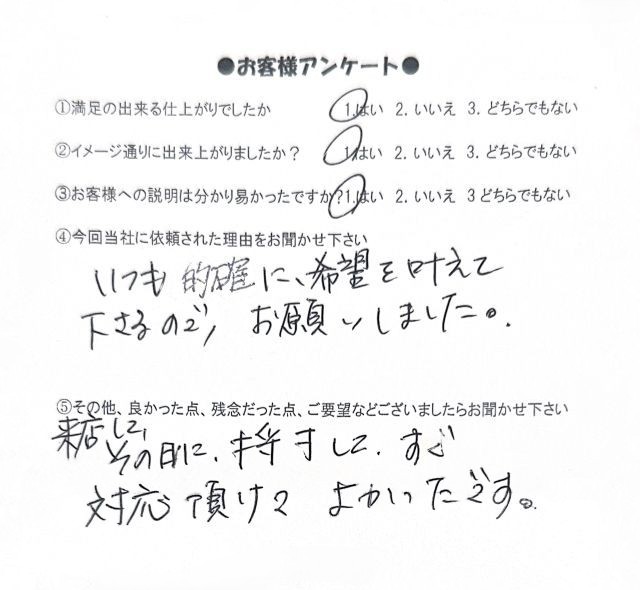 ●お客様アンケート●
①満足の出来る仕上がりでしたか 1.はい 2.いいえ 3.どちらでもない
②イメージ通りに出来上がりましたか? 1.はい 2.いいえ 3.どちらでもない
③お客様への説明は分かり易かったですか?1.はい 2.いいえ 3どちらでもない
④今回当社に依頼された理由をお聞かせ下さい
いつも的確に、希望を叶えて
下さるので、お願いしました。
⑤その他、良かった点、残念だった点、ご要望などございましたらお聞かせ下さい
来店して、
その日に、して、すぐ
対応頂けて よかったです。